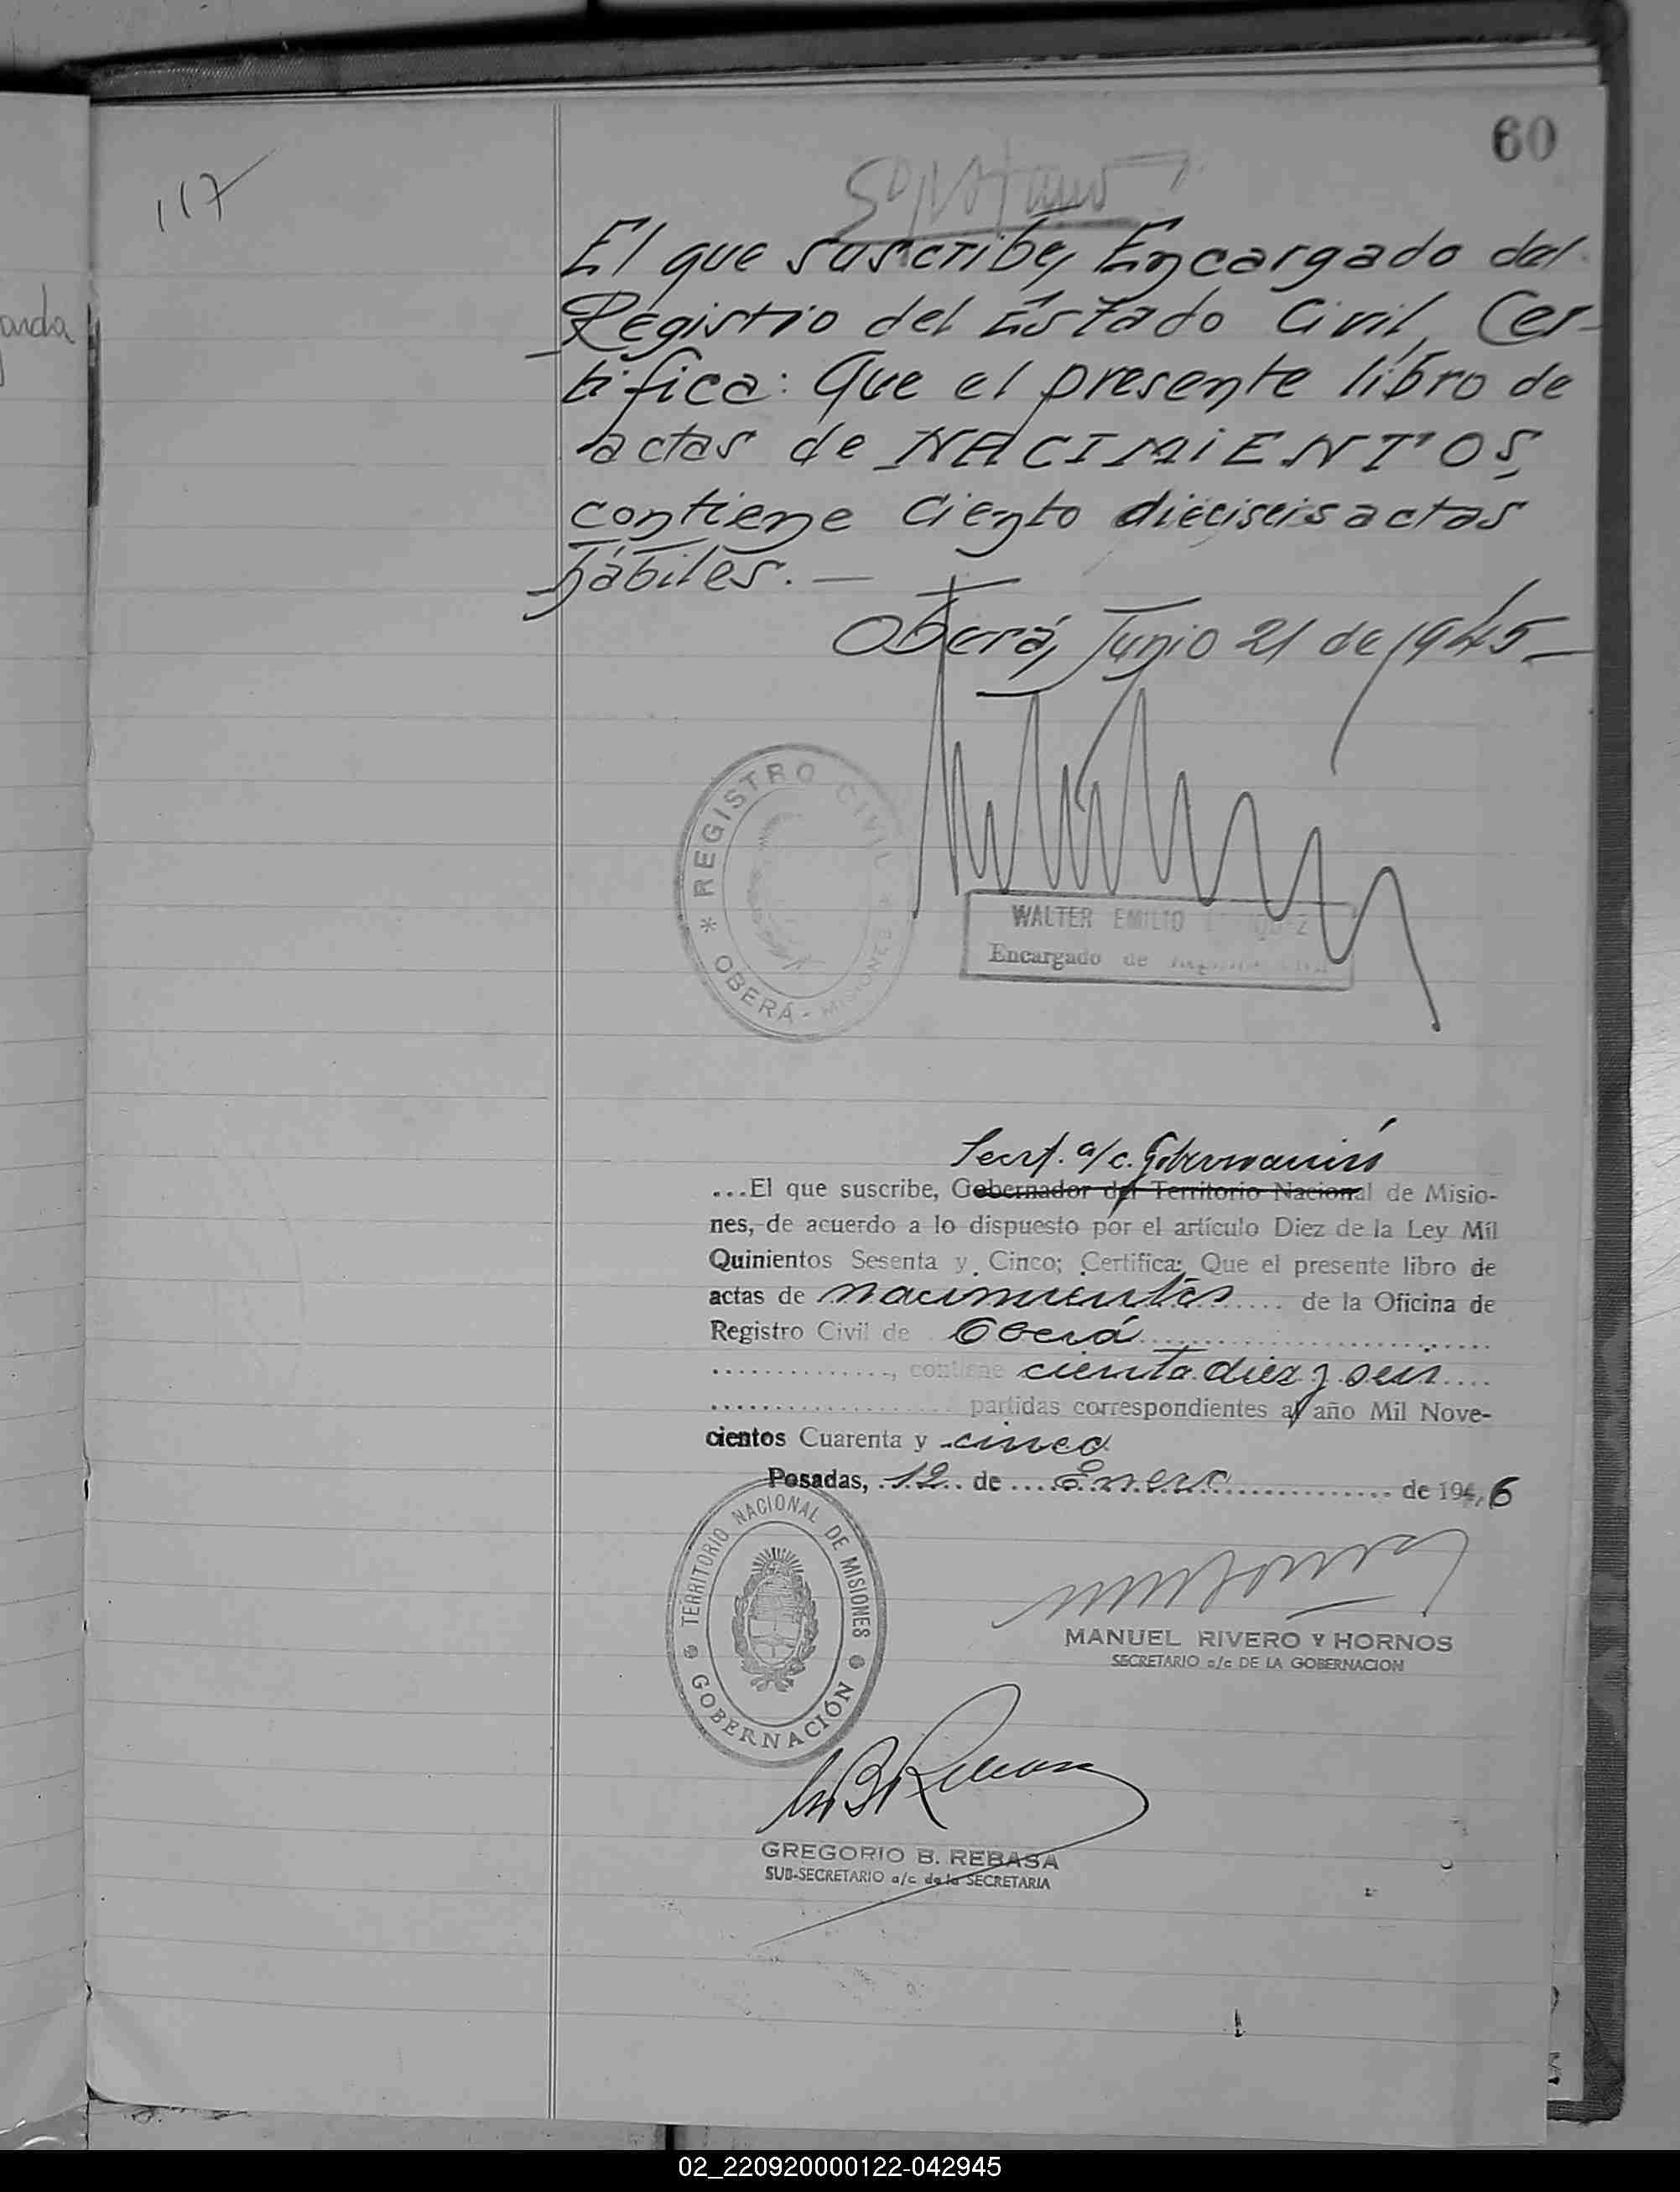 60
117
El que suscribe, Encargado del
Registro del Estado Civil, Cer-
tifica: Que el presente libro de
actas de NACIMIENTOS,
contiene ciento dieciseis actas
hábiles. —
Oberá, Junio 21 de 1945 —
* REGISTRO CIVIL *
OBERÁ - MISIONES
WALTER EMILIO
Encargado de
Secret. a/c. Gobernación
...El que suscribe, Gobernador del Territorio Nacional de Misio-
nes, de acuerdo a lo dispuesto por el artículo Diez de la Ley Mil
Quinientos Sesenta y Cinco; Certifica: Que el presente libro de
actas de nacimientos de la Oficina de
Registro Civil de Oberá
, contiene ciento diez y seis
partidas correspondientes al año Mil Nove-
cientos Cuarenta y cinco
Posadas, 12 de Enero de 1946
TERRITORIO NACIONAL DE MISIONES
GOBERNACIÓN
MANUEL RIVERO Y HORNOS
SECRETARIO a/c DE LA GOBERNACION
GREGORIO B. REBASA
SUB-SECRETARIO a/c de la SECRETARIA
02_220920000122-042945